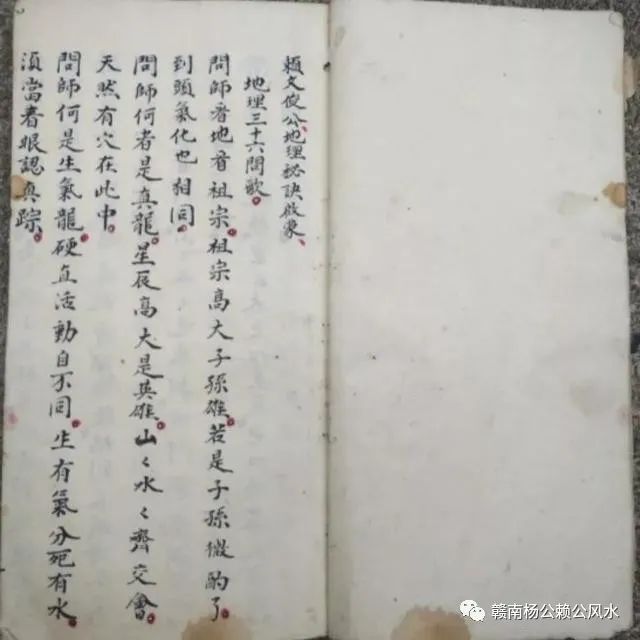 賴文俊公地理秘訣啟蒙
地理三十六問歌
問師看地看祖宗祖宗高大子孫雄若是子孫微的了
到頭氣化也相同
問師何者是真龍星辰高大是英雄山々水々齊交會
天然有穴在此中
問師何是生氣龍硬直活動自不同生有氣分死有水
須當看眼認真踪
赣南杨公赖公风水